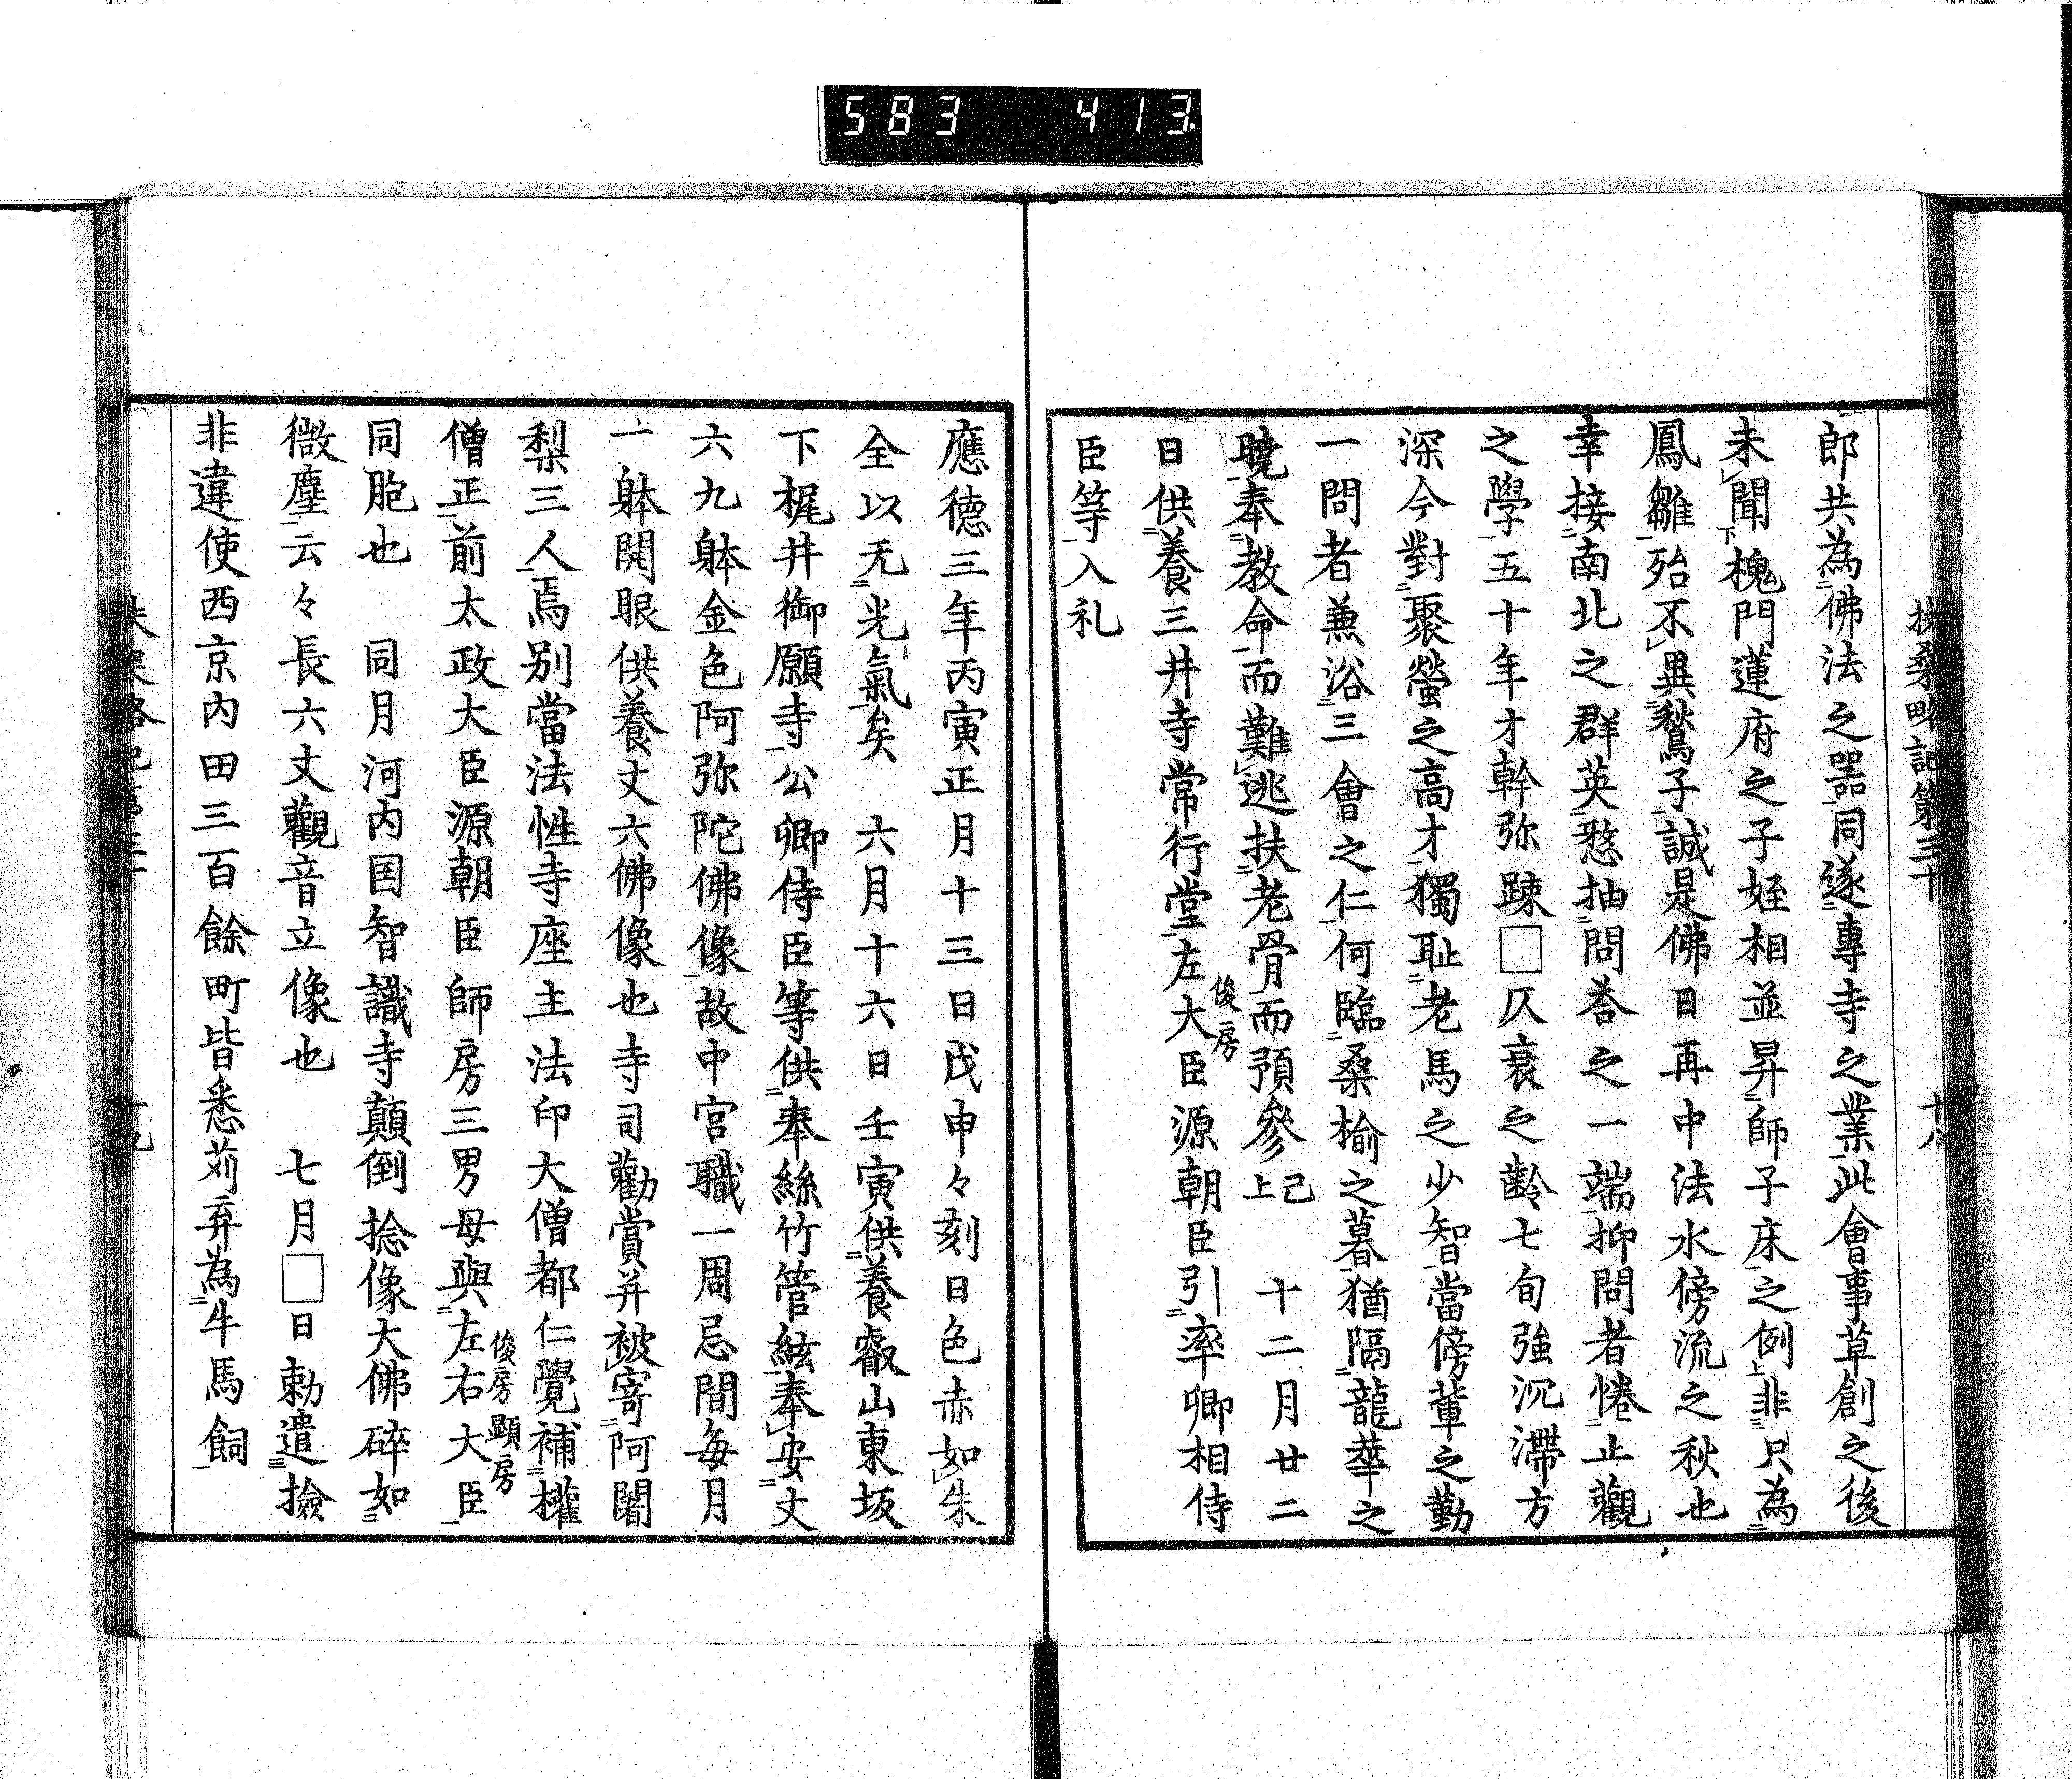 583 413.
扶桑略記第三十 十八
郎共為佛法之器同遂專寺之業此會事草創之後
未聞槐門蓮府之子姪相並昇師子床之例非只為
鳳雛殆不異鶖子誠是佛日再中法水傍流之秋也
幸接南北之群英愁抽問荅之一端抑問者惓止觀
之學五十年才幹弥踈□仄衰之齡七旬強沉滯方
深今對聚螢之高才獨耻老馬之少智當傍輩之勤
一問者兼浴三會之仁何臨桑榆之暮猶隔龍華之
曉奉教命而難逃扶老骨而預參已上 十二月廿二
日供養三井寺常行堂左大臣俊房源朝臣引率卿相侍
臣等入礼
應德三年丙寅正月十三日戊申々刻日色赤如朱
全以无光氣矣 六月十六日壬寅供養叡山東坂
下梶井御願寺公卿侍臣等供奉絲竹管絃奉安丈
六九躰金色阿弥陀佛像故中宮職一周忌間每月
一躰開眼供養丈六佛像也寺司勸賞并被寄阿闍
梨三人焉別當法性寺座主法印大僧都仁覺補權
僧正前太政大臣源朝臣師房三男母與左右大臣俊房顕房
同胞也 同月河内国智識寺顛倒捴像大佛碎如
微塵云々長六丈觀音立像也 七月□日勅遣撿
非違使西京内田三百餘町皆悉苅弃為牛馬飼